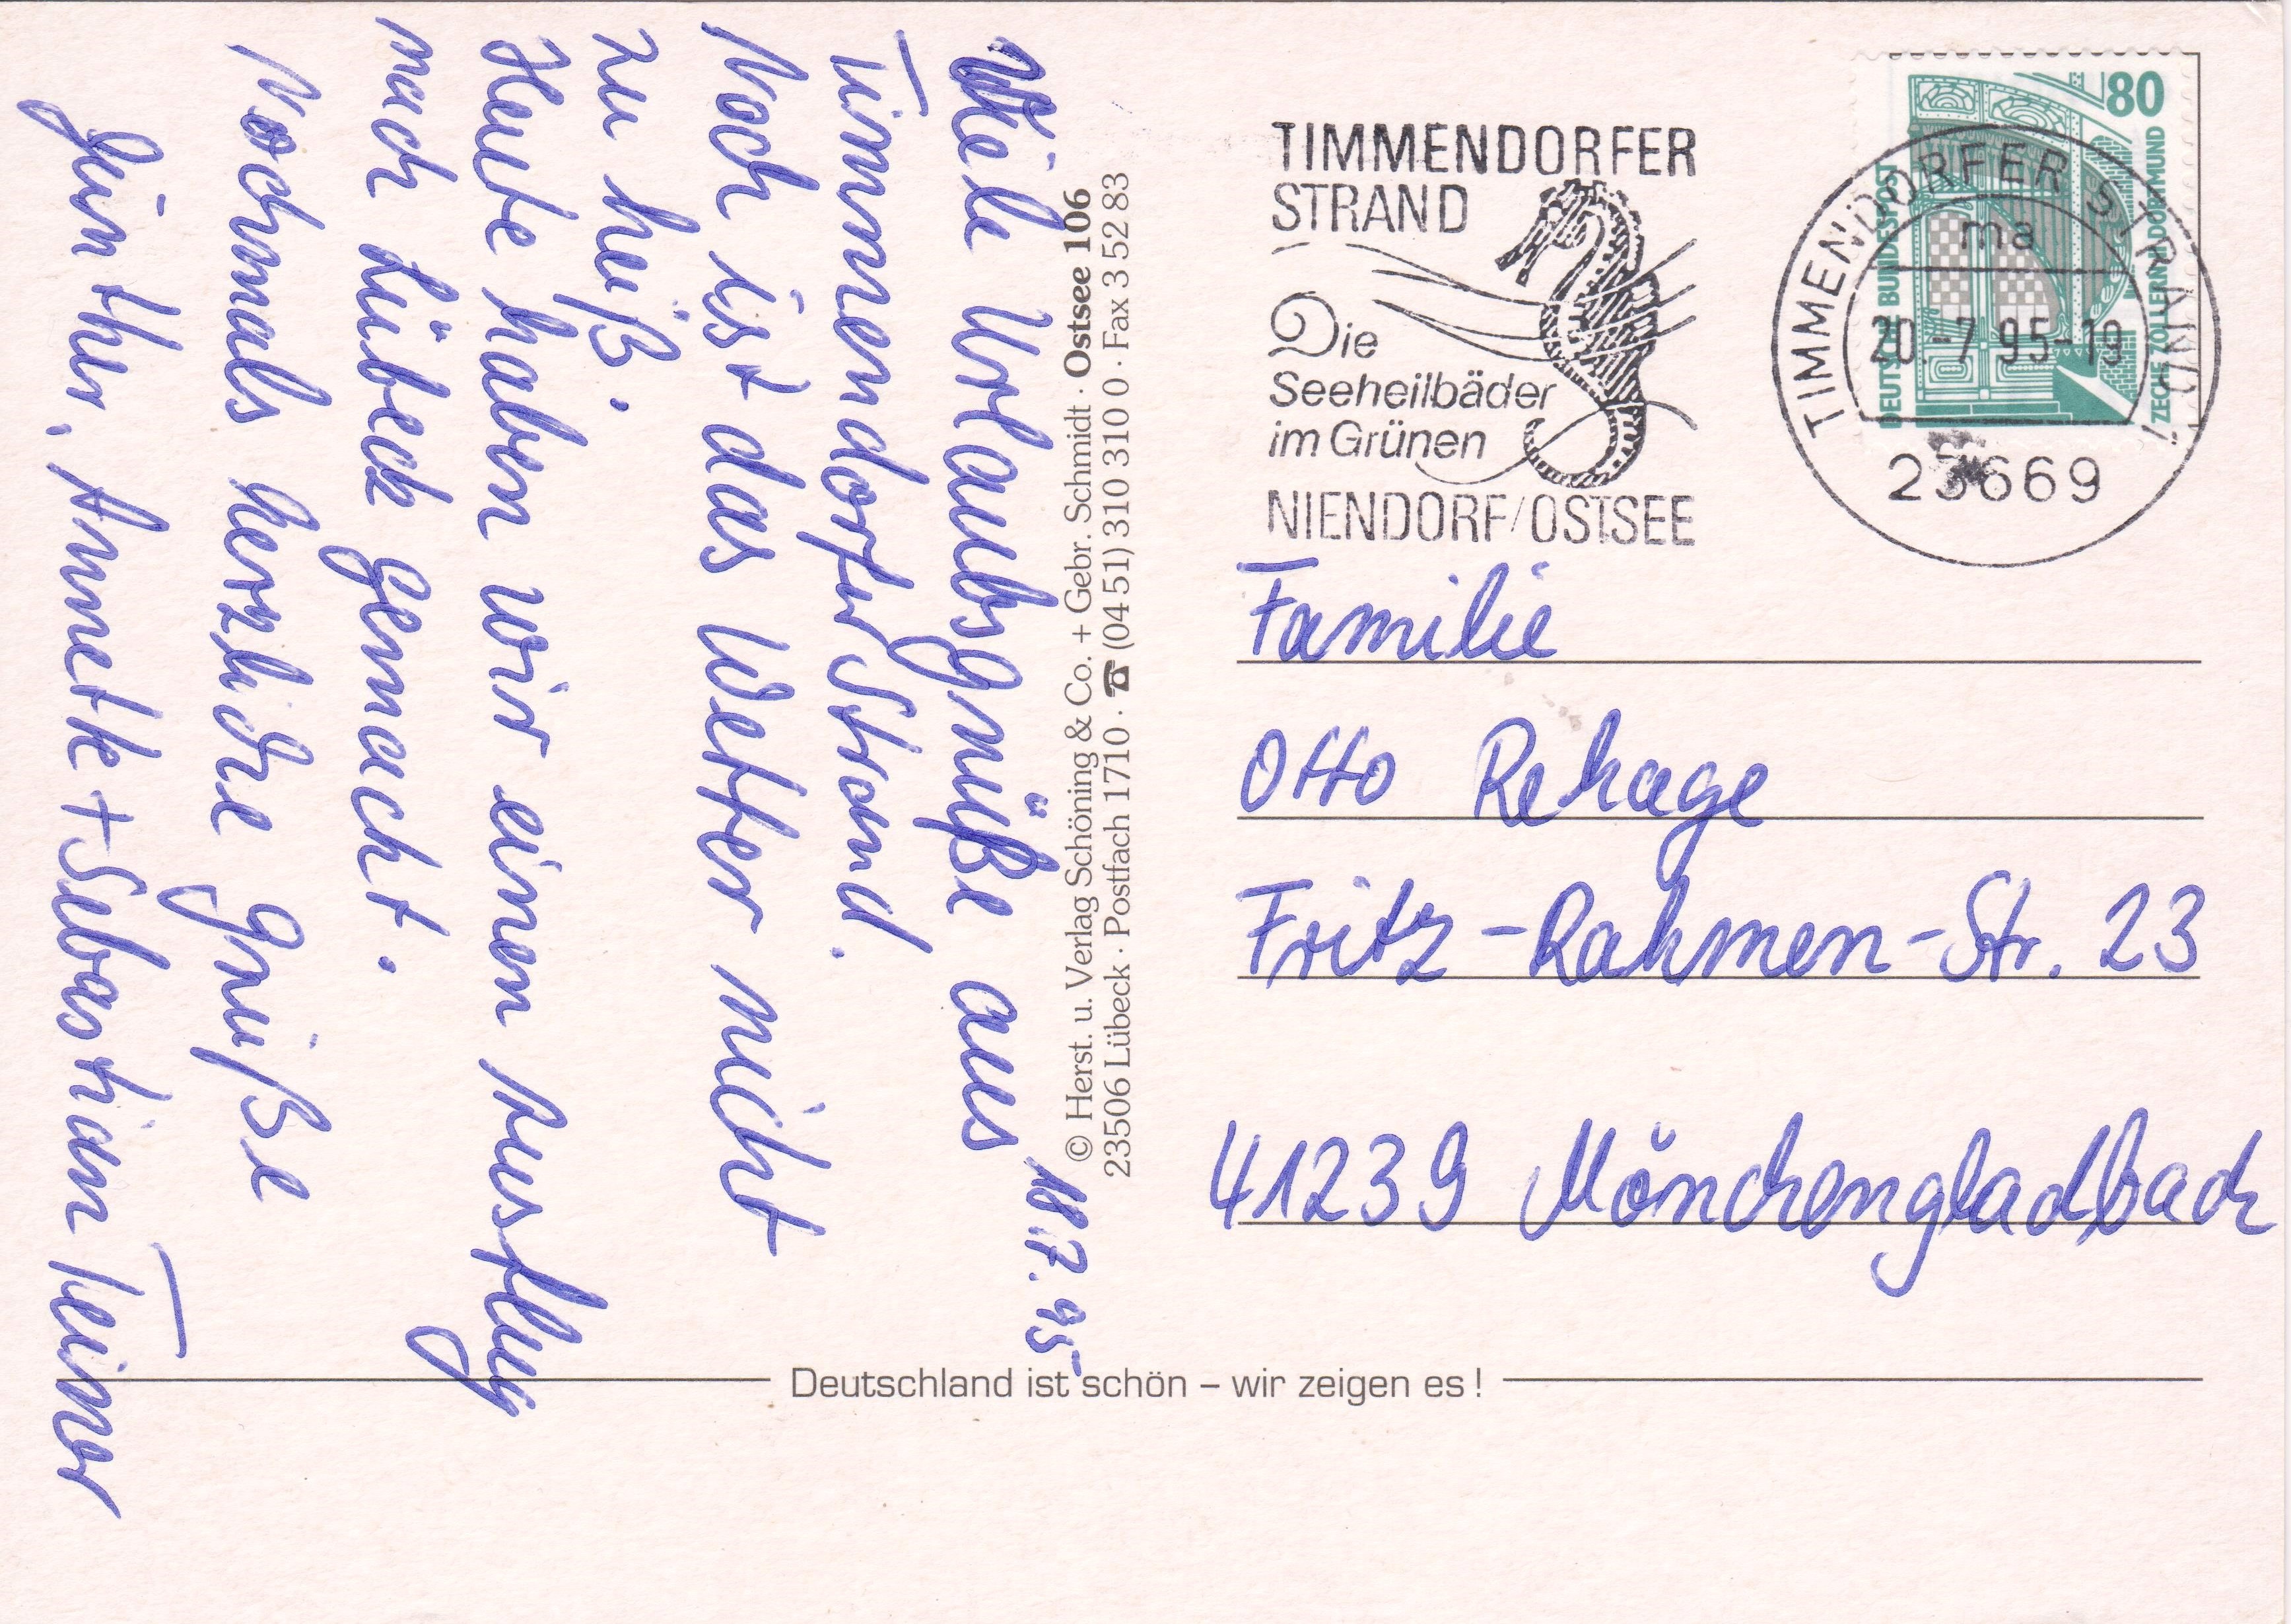 18.7.95
Viele Urlaubsgrüße aus
Timmendorfer Strand.
Noch ist das Wetter nicht
zu heiß.
Heute haben wir einen Ausflug
nach Lübeck gemacht.
Nochmals herzliche Grüße
Günther, Annette + Sebastian
© Herst. u. Verlag Schöning & Co. + Gebr. Schmidt · Ostsee 106
23506 Lübeck · Postfach 1710 · ☎ (04 51) 310 310 0 · Fax 3 52 83
TIMMENDORFER
STRAND
Die
Seeheilbäder
im Grünen
NIENDORF/OSTSEE
80
DEUTSCHE BUNDESPOST
ZECHE ZOLLERN II DORTMUND
TIMMENDORFER STRAND
ma
20.-7.95-19
23669
Familie
Otto Rehage
Fritz-Rahmen-Str. 23
41239 Mönchengladbach
Deutschland ist schön – wir zeigen es !